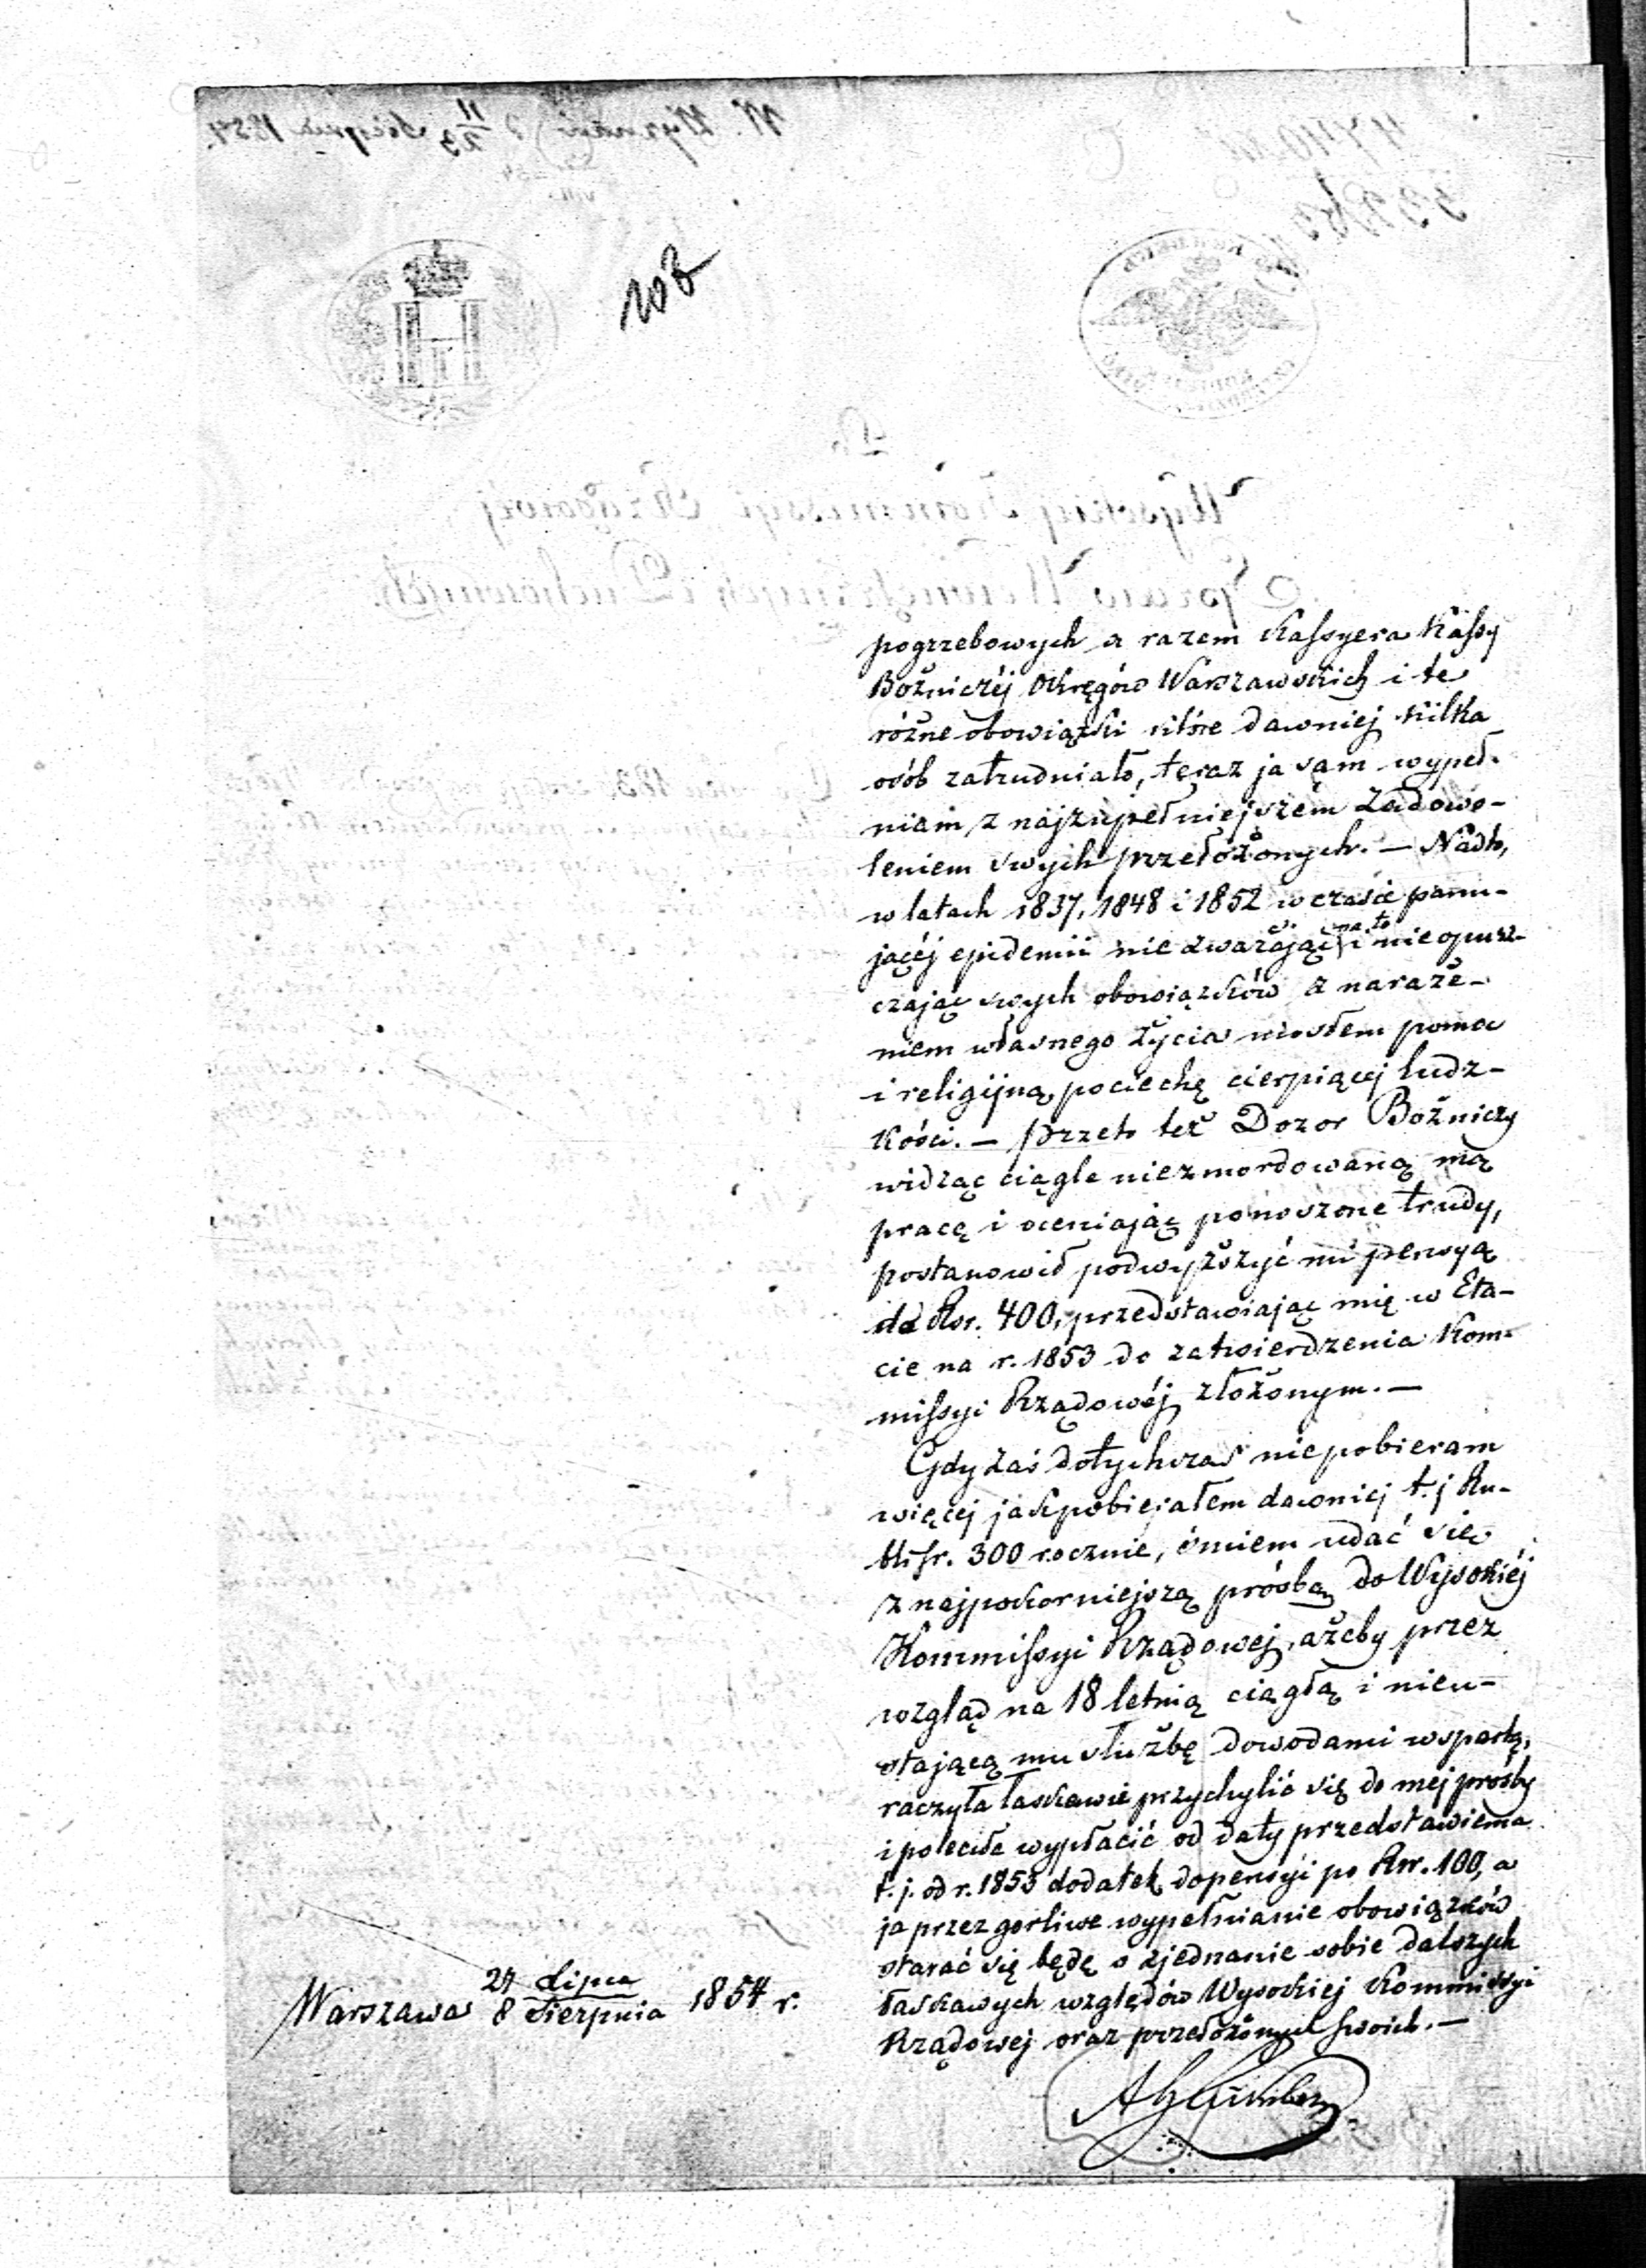 108
pogrzebowych a razem Kassyera Kassy
Bożniczéj Okręgów Warszawskich i te
różne obowiązki które dawniej kilka
osób zatrudniało, teraz ja sam wypeł-
niam z najzupełniejszém zadowo-
leniem swych przełożonych. — Nadto,
w latach 1837, 1848 i 1852 w czasie panu-
jącéj epidemii nie zważając na to i nieopusz-
czając swych obowiązków z naraże-
niem własnego życia niosłem pomoc
i religijną pociechę cierpiącej ludz-
kości. — Przeto też Dozor Bożniczy
widząc ciągle niezmordowaną mą
pracę i oceniając ponoszone trudy,
postanowił podwyższyć mi pensyą
do Rsr. 400, przedstawiając mię w Eta-
cie na r. 1853 do zatwierdzenia Kom-
missyi Rządowéj złożonym. —
Gdy zaś dotychczas niepobieram
więcej jak pobierałem dawniej t. j Ru-
bli sr. 300 rocznie, śmiem udać się
z najpokorniejszą prośbą do Wysokiéj
Kommissyi Rządowej, ażeby przez
wzgląd na 18 letnią ciągłą i nieu-
stającą mu służbę dowodami wspartą,
raczyła łaskawie przychylić się do mej prośby
i poleciła wypłacić od daty przedstawienia
t. j. od r. 1853 dodatek do pensyi po Rsr. 100, a
ja przez gorliwe wypełnianie obowiązków
starać się będę o zjednanie sobie dalszych
łaskawych względów Wysokiej Kommissyi
Rządowej oraz przełożonych swoich. —
Warszawa 27 Lipca
8 Sierpnia 1854 r.